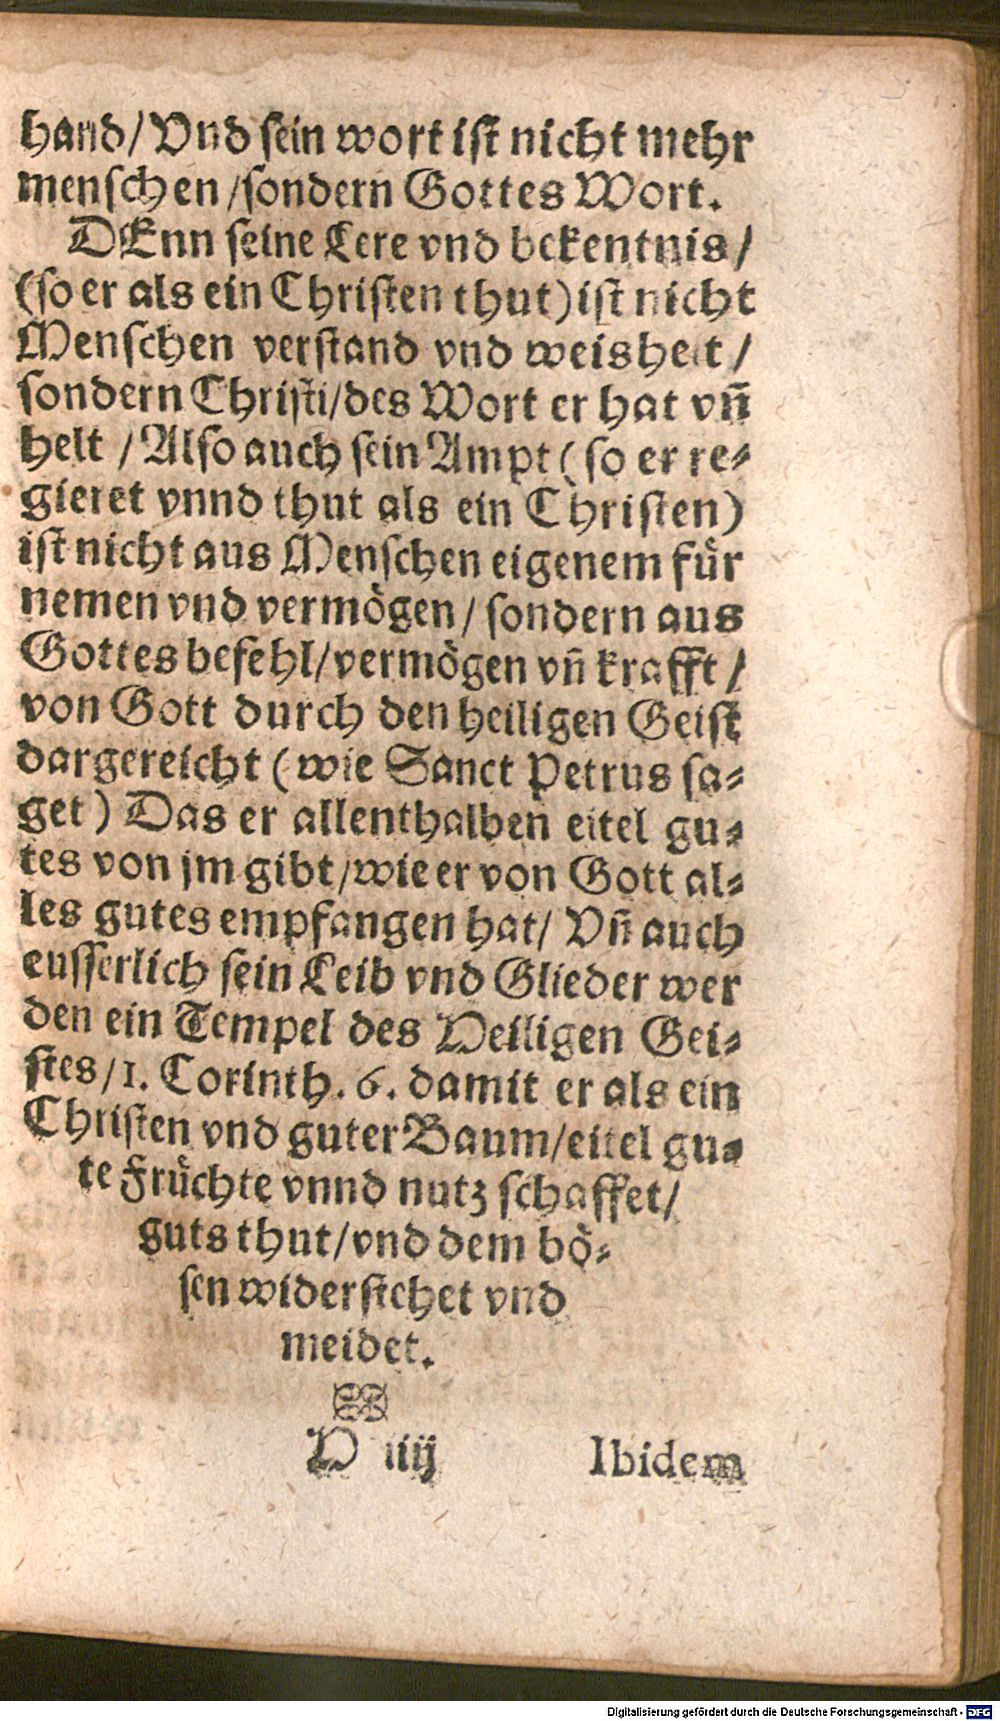 hand/ Vnd sein wort ist nicht mehr
menschen /sondern Gottes Wort.
DEnn seine Lere vnd bekentnis/
(so er als ein Christen thut) ist nicht
Menschen verstand vnd weisheit /
sondern Christi/des Wort er hat vn̄
helt / Also auch sein Ampt ( so er re⸗
gieret vnnd thut als ein Christen)
ist nicht aus Menschen eigenem fuͤr
nemen vnd vermoͤgen / sondern aus
Gottes befehl/vermoͤgen vn̄ krafft /
von Gott durch den heiligen Geist
dargereicht ( wie Sanct Petrus sa⸗
get ) Das er allenthalben eitel gu⸗
tes von jm gibt/wie er von Gott al⸗
les gutes empfangen hat/ Vn̄ auch
eusserlich sein Leib vnd Glieder wer
den ein Tempel des Heiligen Gei⸗
stes/1. Corinth. 6. damit er als ein
Christen vnd guter Baum/eitel gu⸗
te Fruͤchte vnnd nutz schaffet/
guts thut/vnd dem boͤ⸗
sen widerstehet vnd
meidet.
iiij Ibidem
Digitalisierung gefördert durch die Deutsche Forschungsgemeinschaft - DFG